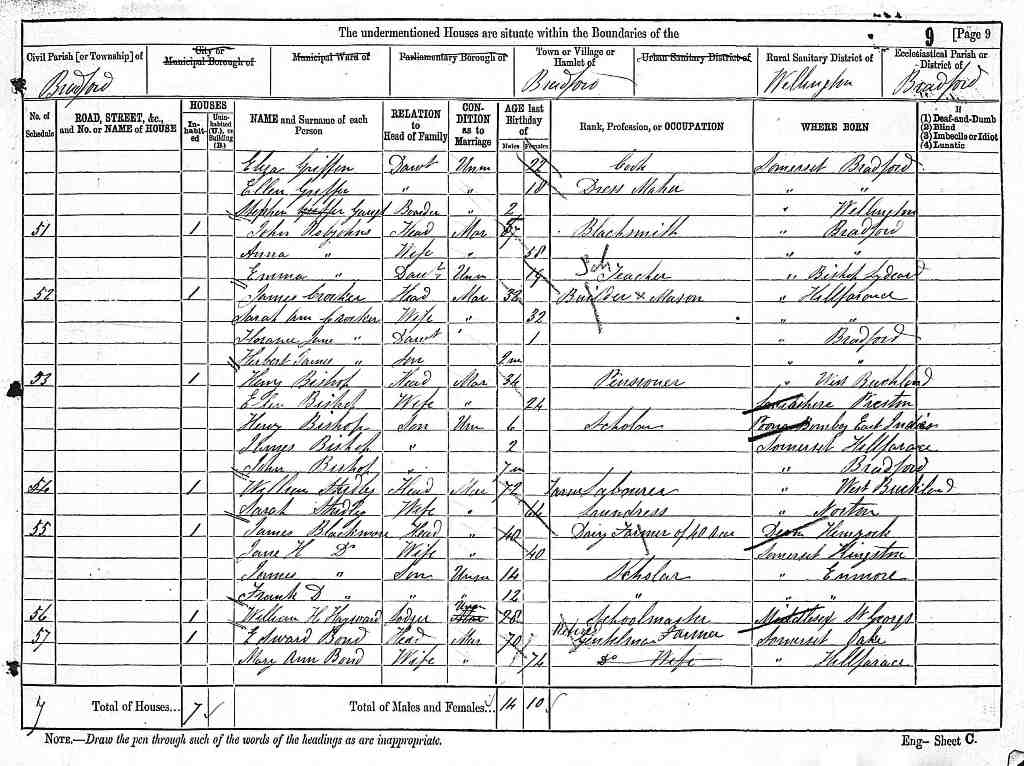 The undermentioned Houses are situate within the Boundaries of the
9 [Page 9
Civil Parish [or Township] of Bradford
City or Municipal Borough of
Municipal Ward of
Parliamentary Borough of
Town or Village or Hamlet of Bradford
Urban Sanitary District of
Rural Sanitary District of Wellington
Ecclesiastical Parish or District of Bradford
No. of Schedule
ROAD, STREET, &c., and No. or NAME of HOUSE
HOUSES
Inhabited
Uninhabited (U.), or Building (B.)
NAME and Surname of each Person
RELATION to Head of Family
CONDITION as to Marriage
AGE last Birthday of
Males Females
Rank, Profession, or OCCUPATION
WHERE BORN
If
(1) Deaf-and-Dumb
(2) Blind
(3) Imbecile or Idiot
(4) Lunatic
Eliza Griffen Dawt Unm 22 Cook Somerset Bradford
Ellen " " 18 Dress Maker " "
Stephen Boarder " 2 " Wellington
51 1 John Robjohns Head Mar Blacksmith " Bradford
Anna " Wife " 58 " "
Emma " Dawt Unm 19 Sch Teacher " Bishop Lydeard
52 1 James Crocker Head Mar 32 Builder & Mason " Hillfarance
Sarah Ann Crocker Wife " 32 " "
Florance Jane " Dawt " 1 " Bradford
Herbert James " Son 2m " "
53 1 Henry Bishop Head Mar 34 Pensioner " West Buckland
Ellen Bishop Wife " 24 Lancashire Preston
Henry Bishop Son Unm 6 Scholar Poona Bombay East Indies
James Bishop " 2 Somerset Hillfarance
John Bishop " 7m " Bradford
54 1 William Head Mar 72 Farm Labourer " West Buckland
Sarah Wife " 66 Laundress " Norton
55 1 James Blackmore Head " 40 Dairy Farmer of 40 acres Devon Hemyock
Jane H Do Wife " 40 Somerset Kingston
James " Son Unm 14 Scholar " Enmore
Frank D " " " 12 " " "
56 1 William H Hayward Lodger Unm Mar 28 Schoolmaster Middlesex St Georges
57 1 Edward Bond Head Mar 70 Retired Gentleman Farmer Somerset Oake
Mary Ann Bond Wife " 74 Do Wife " Hillfarance
7 Total of Houses... 7 Total of Males and Females... 14 10
NOTE.—Draw the pen through such of the words of the headings as are inappropriate.
Eng— Sheet C.